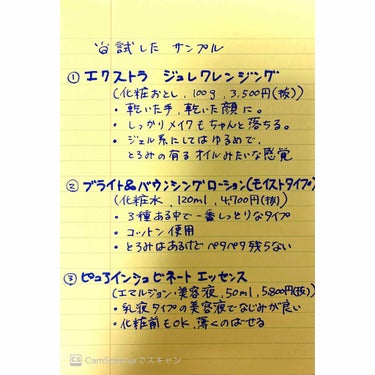 試した サンプル
① エクストラ ジュレクレンジング
(化粧おとし、100g、3,500円(抜))
・乾いた手、乾いた顔に。
・しっかりメイクもちゃんと落ちる。
・ジェル系にしてはゆるめで、
とろみの有るオイルみたいな感覚
② ブライト&バウンシングローション(モイストタイプ)
(化粧水、120ml、4,700円(抜))
・3種ある中で一番しっとりなタイプ
・コットン使用
・とろみはあるけどペタペタ残らない
③ ピュアインショビネートエッセンス
(エマルジョン・美容液、50ml、5,800円(抜))
・乳液タイプの美容液でなじみが良い
・化粧前もOK、薄くのばせる
CS CamScannerでスキャン